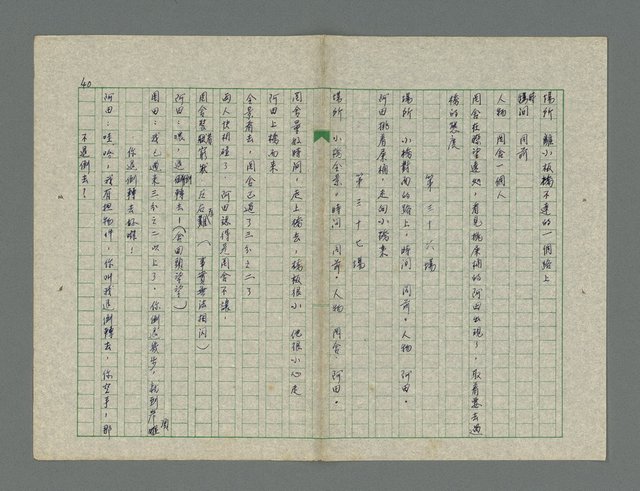 場所 離小板橋不遠的一個路上
時間 同前
人物 周舍一個人
周舍在瞭望遠处，看見挑屎桶的阿田出現了，取着要去過
橋的態度
第三十六場
場所 小橋對面的路上，時間 同前。人物 阿田。
阿田挑着屎桶，走向小橋來
第三十七場
場所 小橋全景，時間 同前。人物 周舍，阿田。
周舍量好時間，走上橋去，橋板很小 他很小心走
阿田上橋而來
全景看去，周舍已過了三分之二了
兩人快相碰了，阿田讓得 周舍不讓，
周舍裝着窮 左右難（事實無法相閃）
阿田：喂，退倒轉去！（會回頭望望）
周田：我已過來三分之二以上了，你倒退幾步，就到岸
你退倒轉去好啦！
阿田：哇哈，我有担物件，你叫我退倒轉去，你空手，那
不退倒去！
40